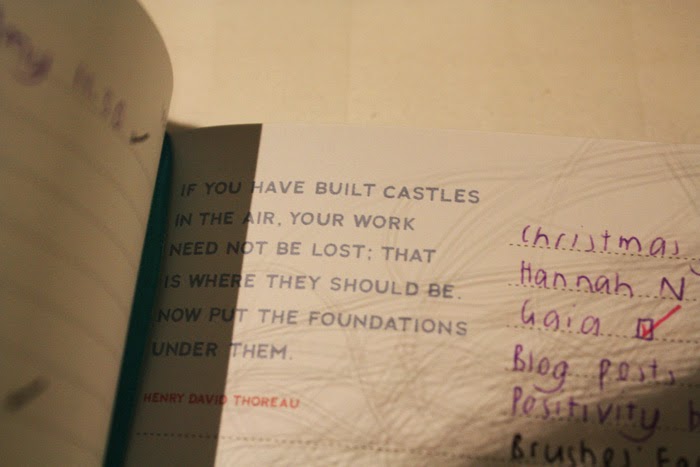 IF YOU HAVE BUILT CASTLES
IN THE AIR, YOUR WORK
NEED NOT BE LOST; THAT
IS WHERE THEY SHOULD BE.
NOW PUT THE FOUNDATIONS
UNDER THEM.
HENRY DAVID THOREAU
Christmas
Hannah N
Gaia
Blog posts
Positivity
Brushes